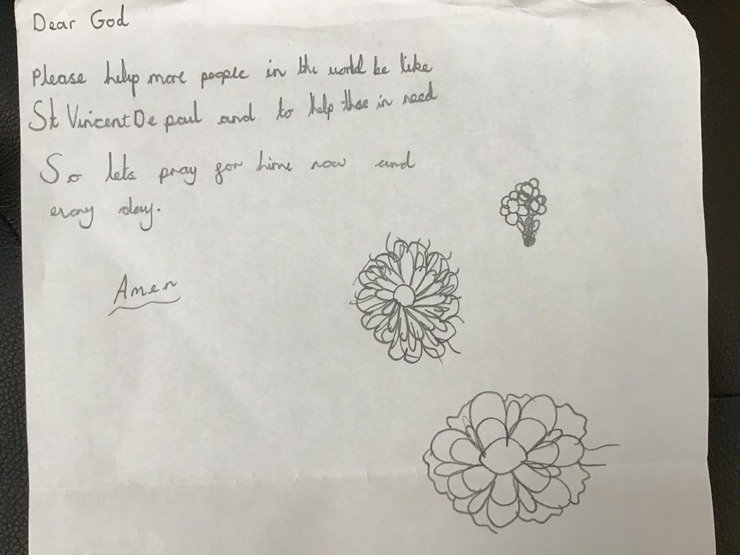 Dear God
Please help more people in the world be like
St Vincent De paul and to help those in need
So lets pray for hime now and
eray day.
Amen